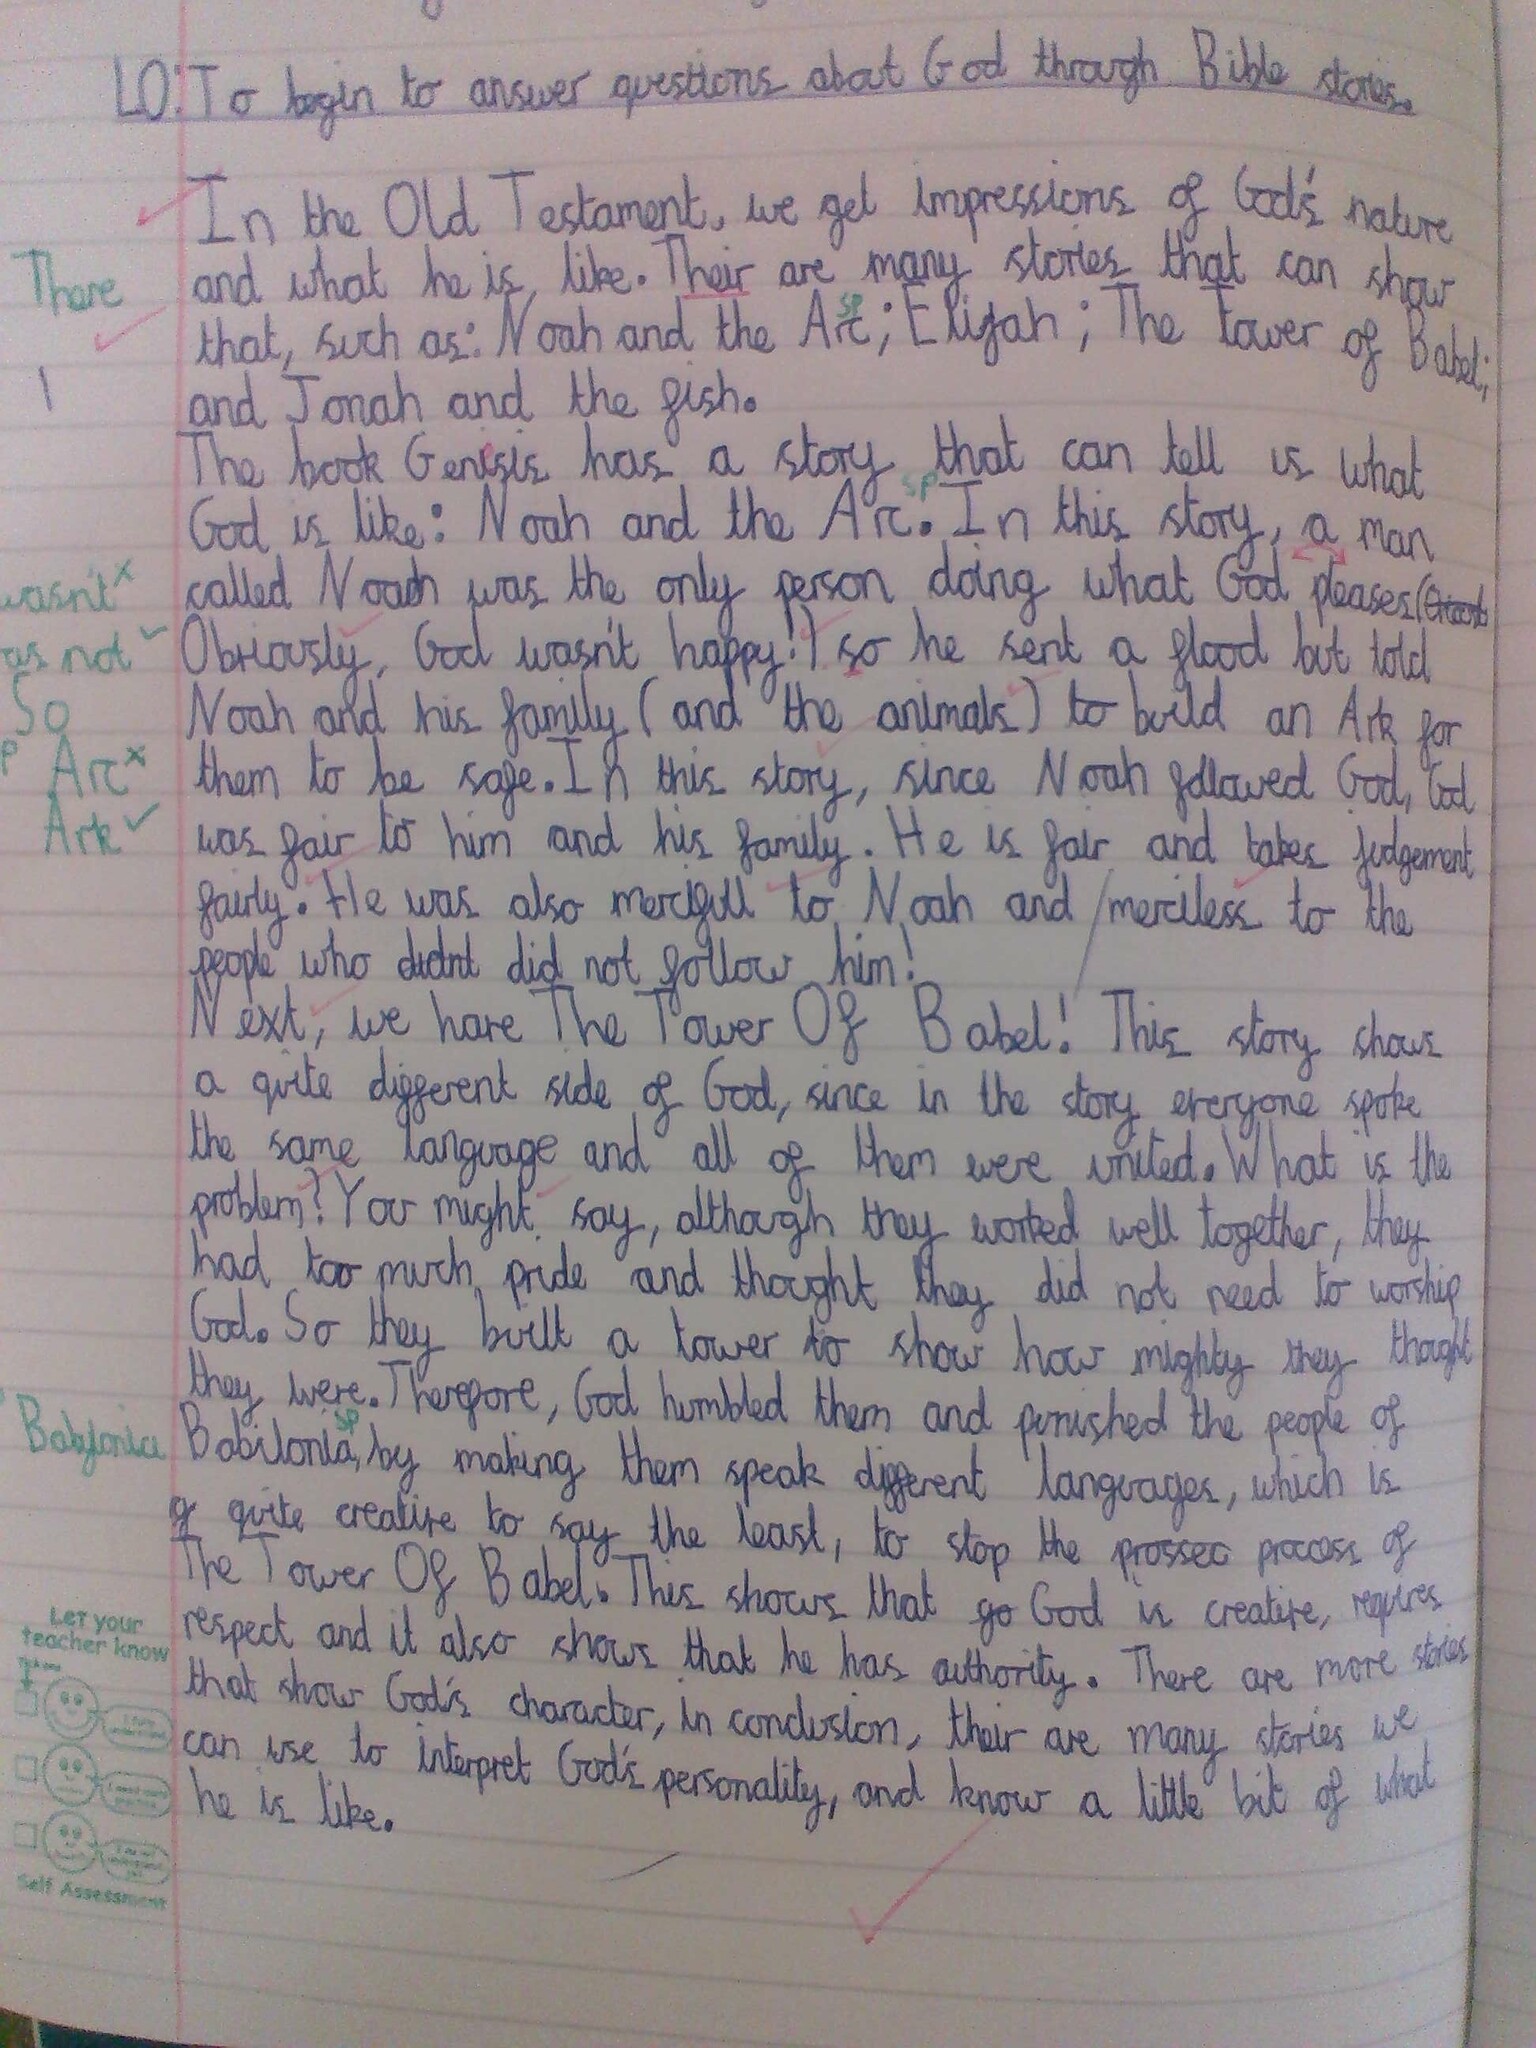 LO: To begin to answer questions about God through Bible stories.
In the Old Testament, we get impressions of God's nature
There and what he is like. Their are many stories that can show
that, such as: Noah and the Arc; Elijah; The Tower of Babel;
sp
1 and Jonah and the fish.
The book Genisis has a story that can tell is what
God is like: Noah and the Arc. In this story, a man
sp
wasn't x called Noah was the only person doing what God pleases (
as not ✓ Obviously, God wasn't happy!) so he sent a flood but told
So Noah and his family (and the animals) to build an Ark for
p Arc x them to be safe. In this story, since Noah followed God, God
Ark ✓ was fair to him and his family. He is fair and takes judgement
fairly. He was also mercifull to Noah and / merciless to the
people who didnt did not follow him!
Next, we have The Tower Of Babel! This story shows
a quite different side of God, since in the story everyone spoke
the same language and all of them were united. What is the
problem? You might say, although they worked well together, they
had too much pride and thought they did not need to worship
God. So they built a tower to show how mighty they thought
they were. Therefore, God humbled them and punished the people of
Babylonia Babilonia, by making them speak different languages, which is
sp
quite creative to say the least, to stop the prossec process of
The Tower Of Babel. This shows that go God is creative, requires
respect and it also shows that he has authority. There are more stories
that show God's character, in conclusion, their are many stories we
can use to interpret God's personality, and know a little bit of what
he is like.
Let your
teacher know
Self Assessment